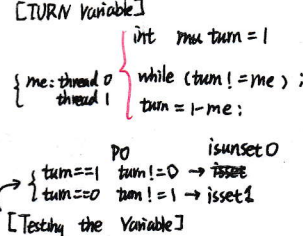 [TURN Variable]
int mu turn = 1
{ me: thread 0
thread 1
while (turn != me) ;
turn = 1-me;
P0 isunset 0
turn==1 turn!=0 → isset
turn==0 turn!=1 → isset 1
[Testing the Variable]